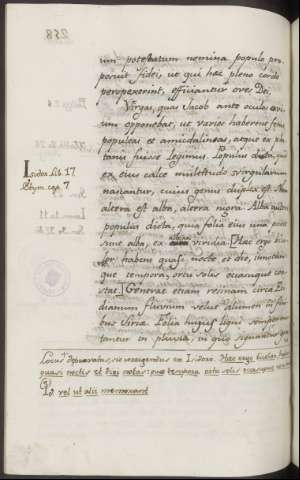 258
um potestatum nomina populo pro
posuit fidei, ut qui hæc pleno corde
perspexerint, efficiantur oves Dei.
Virgas, quas Jacob ante oculos ovi
um opponebat, ut varios haberent fetus
populeas et amicdalineas, atque ex pla
tanis fuisse legimus. Populus dicta, quod
ex eius calce multitudo surgularum
nascantur, cuius genus duplex est. Nam
altera est alba, altera nigra. Alba autem
populus dicta, quia folia eius una parte
sunt alba, ex altera viridia. Hæc ergo bi
color habens quasi noctis et diei, 
que tempora, ortu solis occasuque con
stat. Generat etiam resinam circa Eri
dianum fluvium velut alumen in fini
bus Siriæ. Folia huius ligni 
tantur in pluvia, in quo significatur
Isidor. Lib. 17
Etym. cap. 7
Locus depravatus, sic corrigendus ex Isidoro. Hæc ergo bicolor habens
quasi noctis et diei notas: quæ tempora ortu solis occasuque constant
Id. vel ut alii memorant